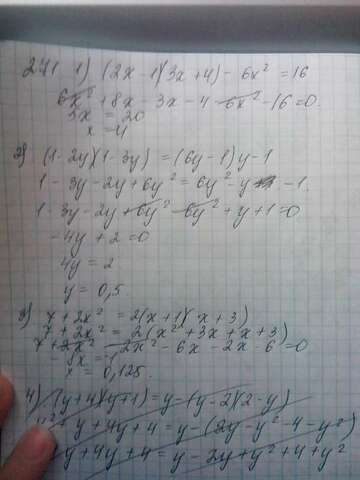 271 1) (2x-1)(3x+4) - 6x² = 16
6x² + 8x - 3x - 4 - 6x² - 16 = 0
5x = 20
x = 4
2) (1-2y)(1-3y) = (6y-1)y-1
1 - 3y - 2y + 6y² = 6y² - y - 1.
1 - 3y - 2y + 6y² - 6y² + y + 1 = 0
-4y + 2 = 0
4y = 2
y = 0,5.
3) 7 + 2x² = 2(x+1)(x+3)
7 + 2x² = 2(x² + 3x + x + 3)
7 + 2x² - 2x² - 6x - 2x - 6 = 0
-8x = -1
x = 0,125.
4) (y+4)(y+1) = y - (y-2)(2-y)
y² + y + 4y + 4 = y - (2y - y² - 4 - y²)
y + 4y + 4 = y - 2y + y² + 4 + y²